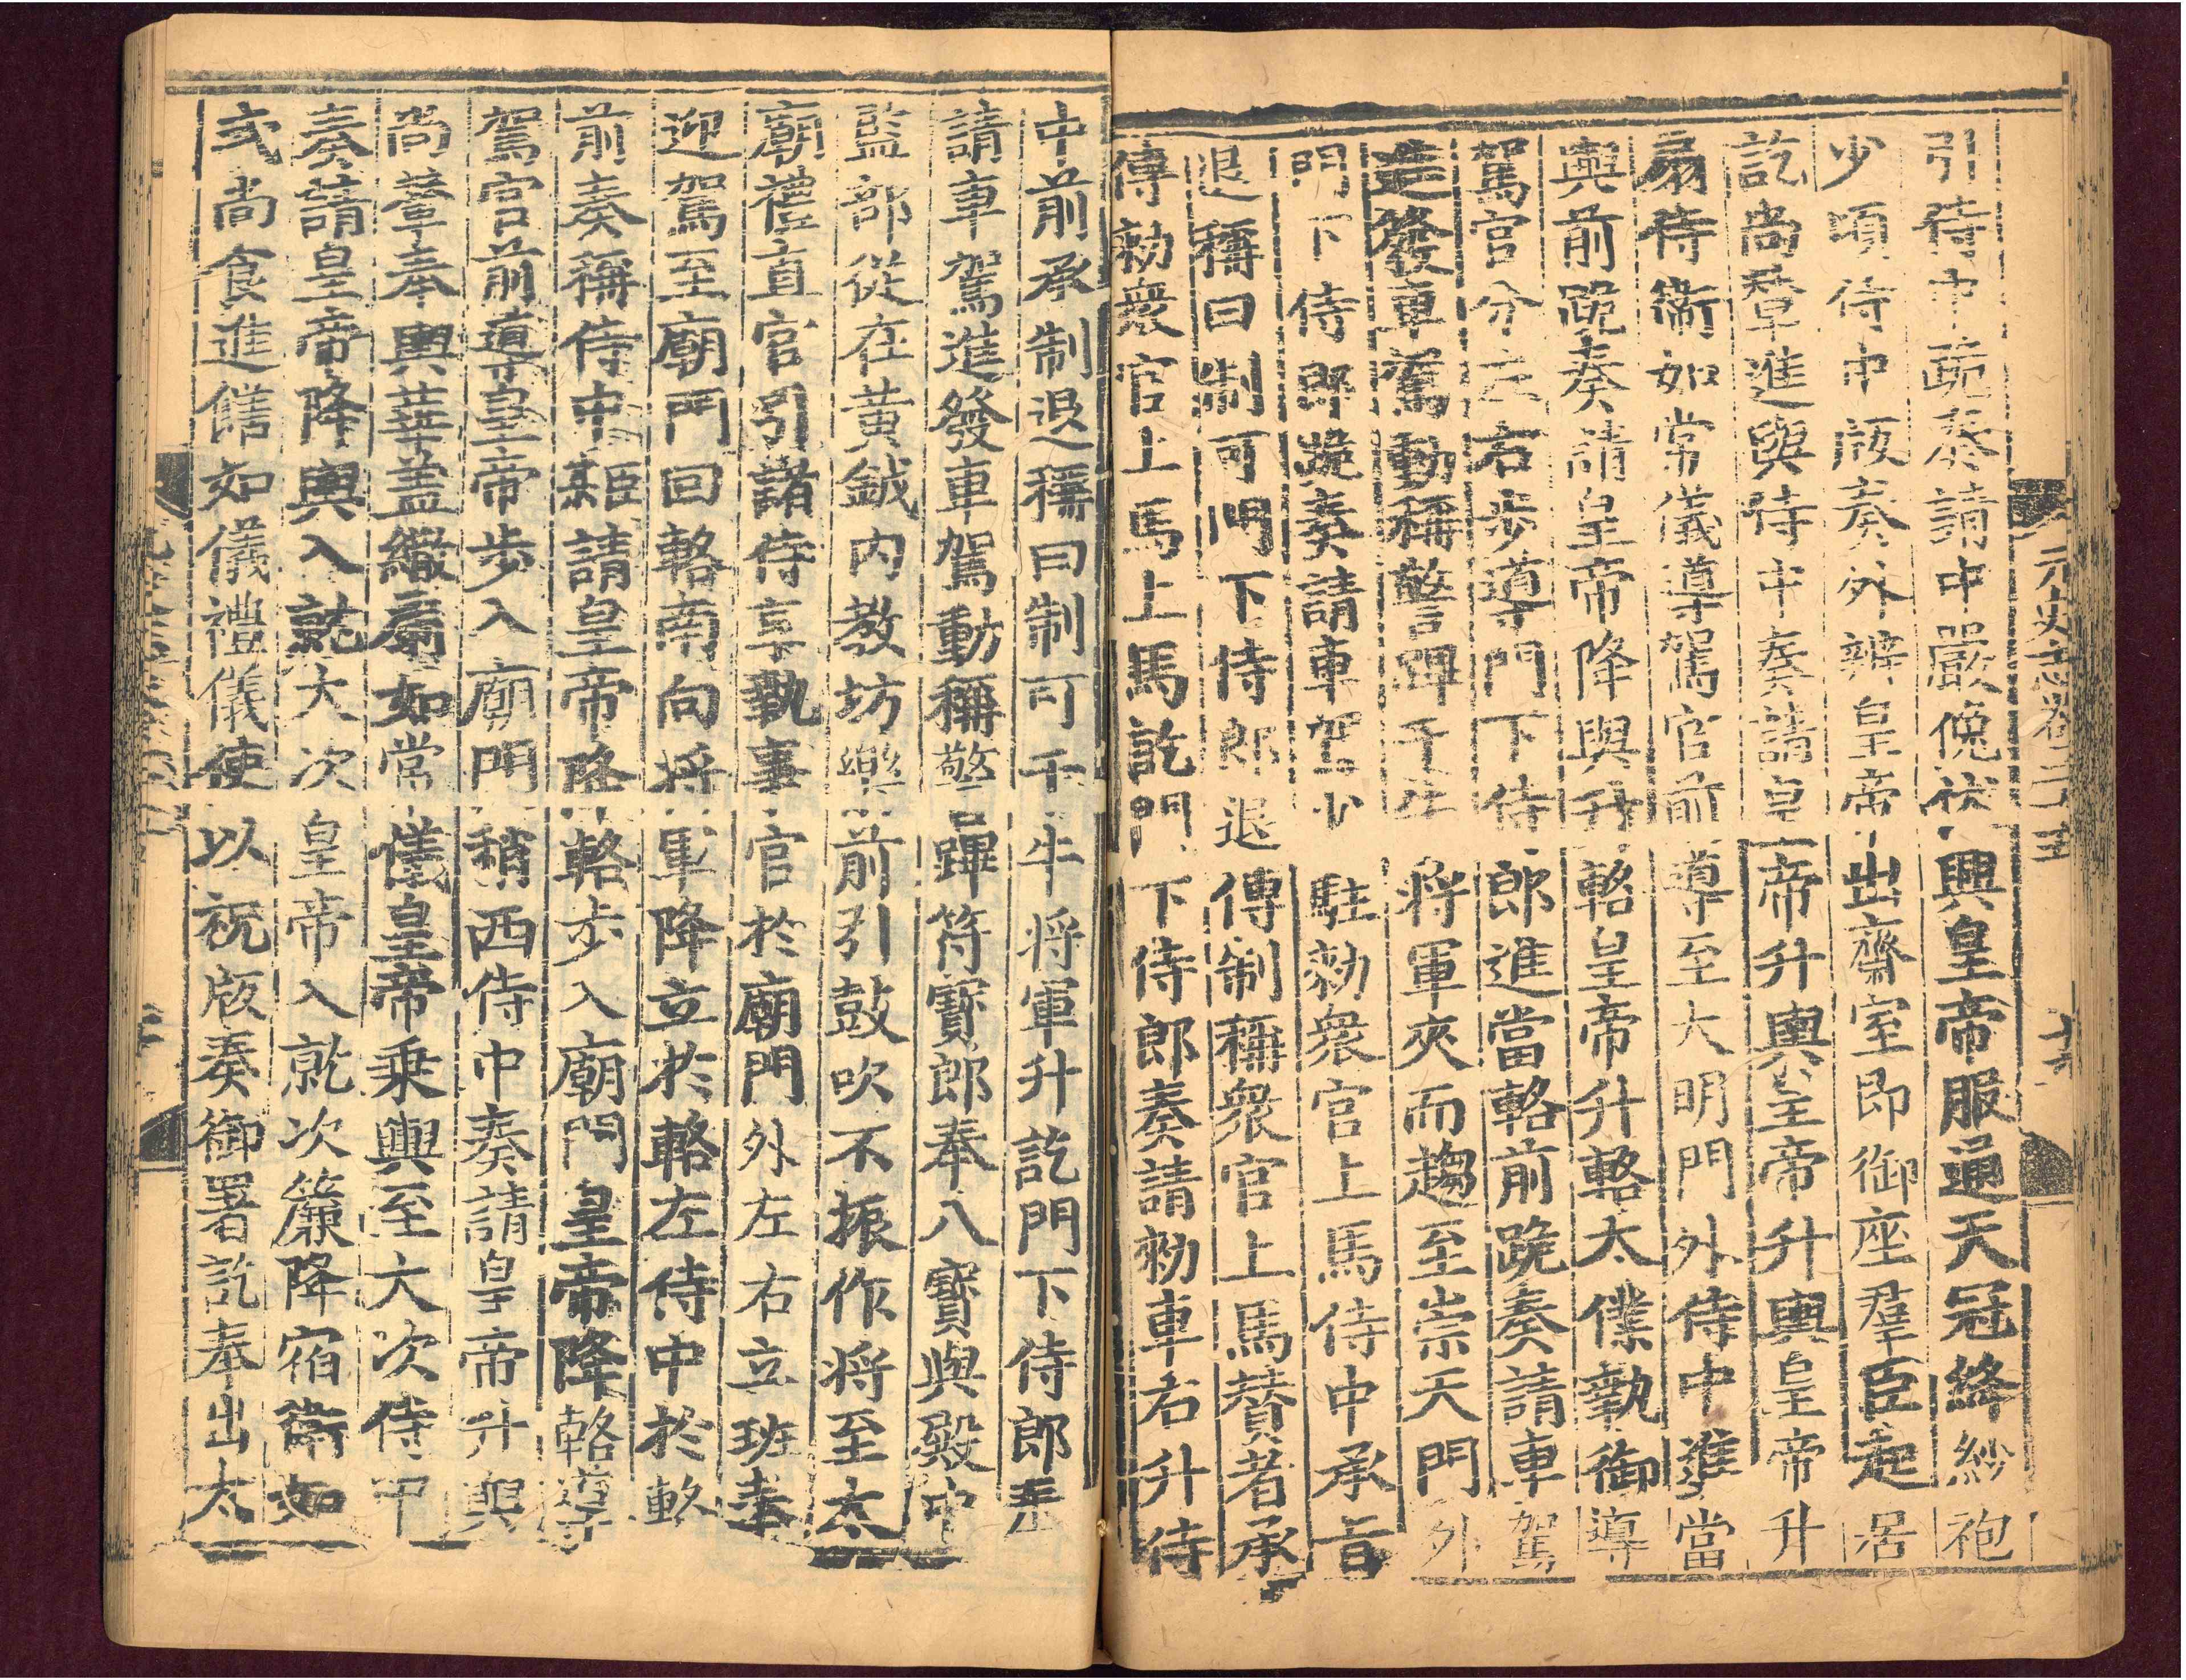 引侍中跪奏請中嚴俛伏興皇帝服通天冠絳紗袍
少頃侍中版奏外辦皇帝出齋室即御座羣臣起居
訖尚輦進輿侍中奏請皇帝升輿皇帝升輿皇帝升
扇侍衛如常儀導駕官前導至大明門外侍中進當
輿前跪奏請皇帝降輿升輅皇帝升輅太僕執御導
駕官分左右步導門下侍郎進當輅前跪奏請車駕
進發車駕動稱警蹕千牛將軍夾而趨至崇天門外
門下侍郎跪奏請車駕少駐勑衆官上馬侍中承旨
退稱曰制可門下侍郎退傳制稱衆官上馬贊者承
傳勑衆官上馬上馬訖門下侍郎奏請勑車右升侍
元史志卷二十五
中前承制退稱曰制可千牛將軍升訖門下侍郎奏
請車駕進發車駕動稱警蹕符寶郎奉八寶與殿中
監部從在黃鉞内教坊樂前引鼓吹不振作將至太
廟禮直官引諸侍享執事官於廟門外左右立班奉
迎駕至廟門回輅南向將軍降立於輅左侍中於輅
前奏稱侍中臣某請皇帝降輅步入廟門皇帝降輅導
駕官前導皇帝步入廟門稍西侍中奏請皇帝升輿
尚輦奉輿華蓋繖扇如常儀皇帝乘輿至大次侍中
奏請皇帝降輿入就大次皇帝入就次簾降宿衛如
式尚食進饍如儀禮儀使以祝版奏御署訖奉出太